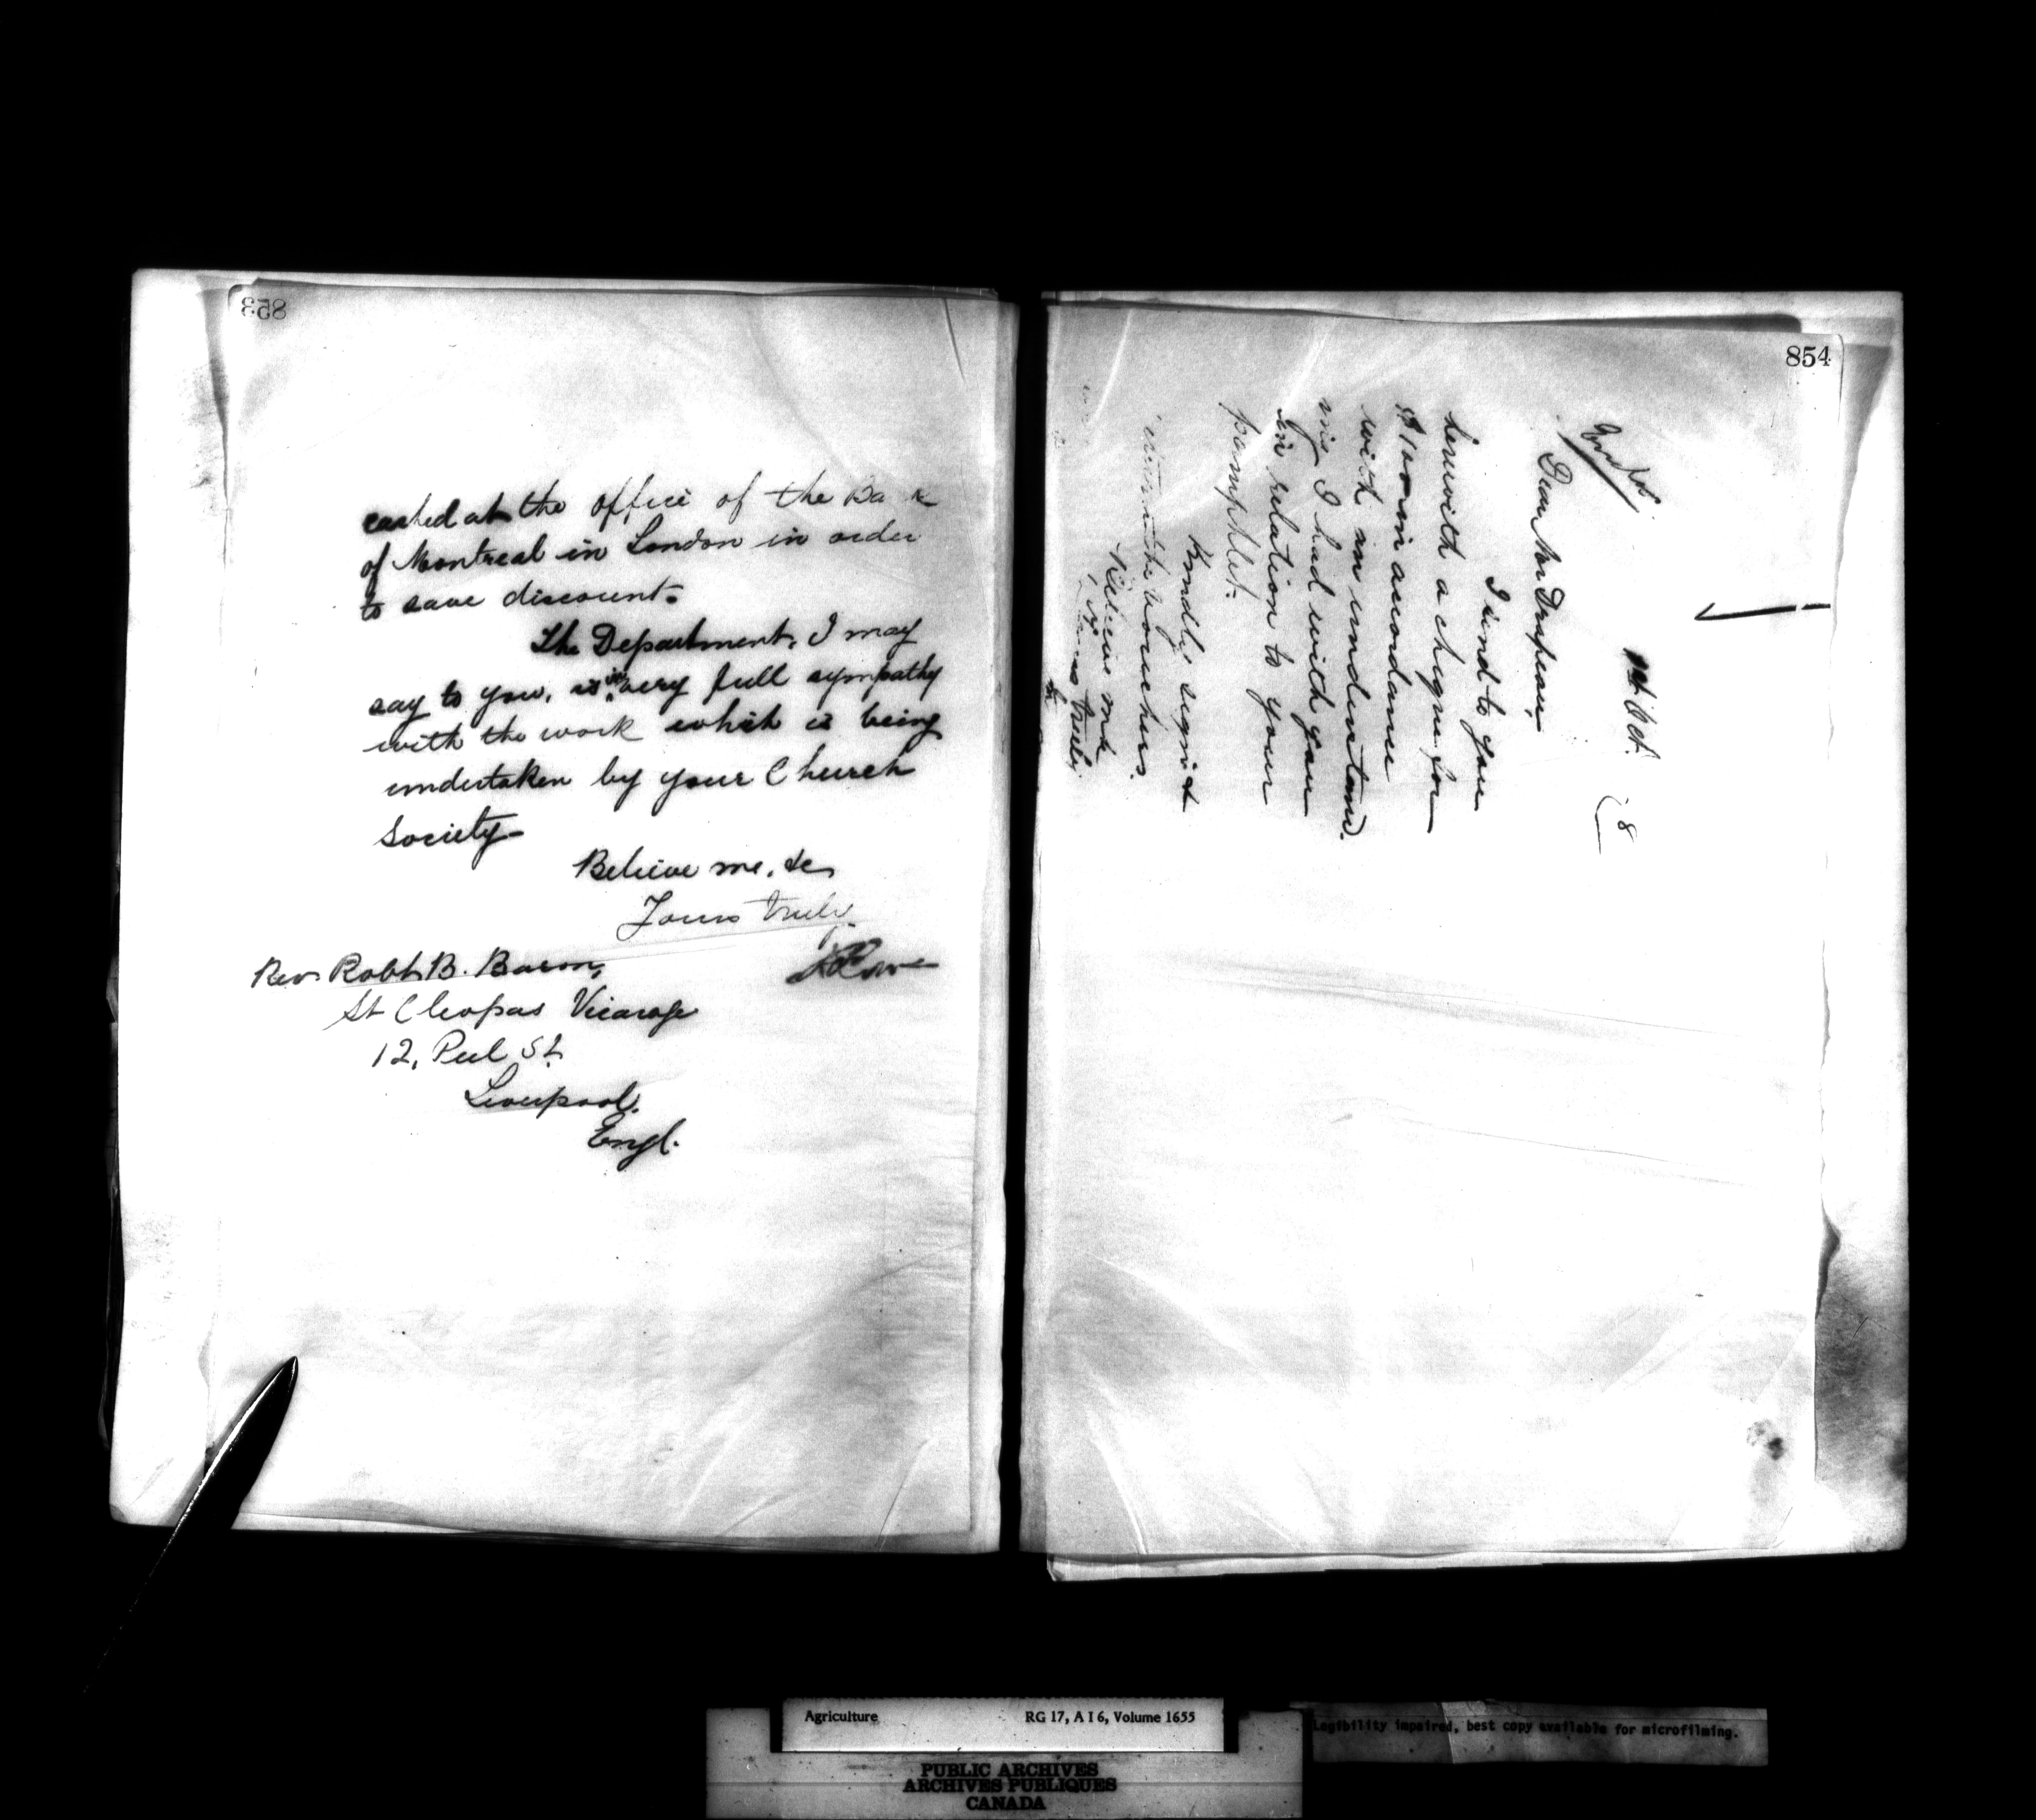 853
cashed at the office of the Ba k
of Montreal in London in order
to save discount.
The Department, I may
say to you, is in very full sympathy
with the work which is being
undertaken by your Church
Society
Believe me, &c
Yours truly
Rev. Robt B. Bacon,
St Cleopas Vicarage
12, Peel St
Liverpool.
Engl.
854
1st Oct. 8
Dear Mr Drapeau,
I send to you
herewith a cheque for
$100 in accordance
with an understand.
ing I had with you
in relation to your
pamphlet.
Kindly sign &
return the vouchers.
Believe me
Yours truly
Agriculture RG 17, A I 6, Volume 1655
Legibility impaired, best copy available for microfilming.
PUBLIC ARCHIVES
ARCHIVES PUBLIQUES
CANADA